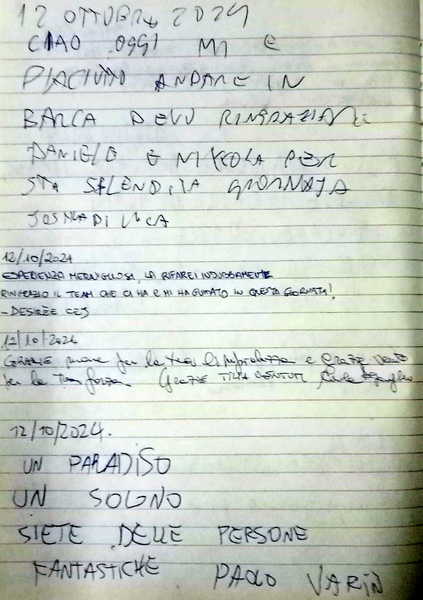 12 OTTOBRE 2024
CIAO OGGI MI E
PIACIUTO ANDARE IN
BARCA DEVO RINGRAZIARE
DANIELE E NIKKOLA PER
STA SPLENDITA GIORNATA
DI LUCA
12/10/2024
ESPERIENZA MERAVIGLIOSA, LA RIFAREI INDUBBIAMENTE
RINGRAZIO IL TEAM CHE CI HA E MI HA GUIDATO IN QUESTA GIORNATA!
- DESIRÈE
12/10/2024
GRAZIE per la tua e Grazie vento
per la Tua forza. Grazie
12/10/2024.
UN PARADISO
UN SOGNO
SIETE DELLE PERSONE
FANTASTICHE PAOLO VARIN